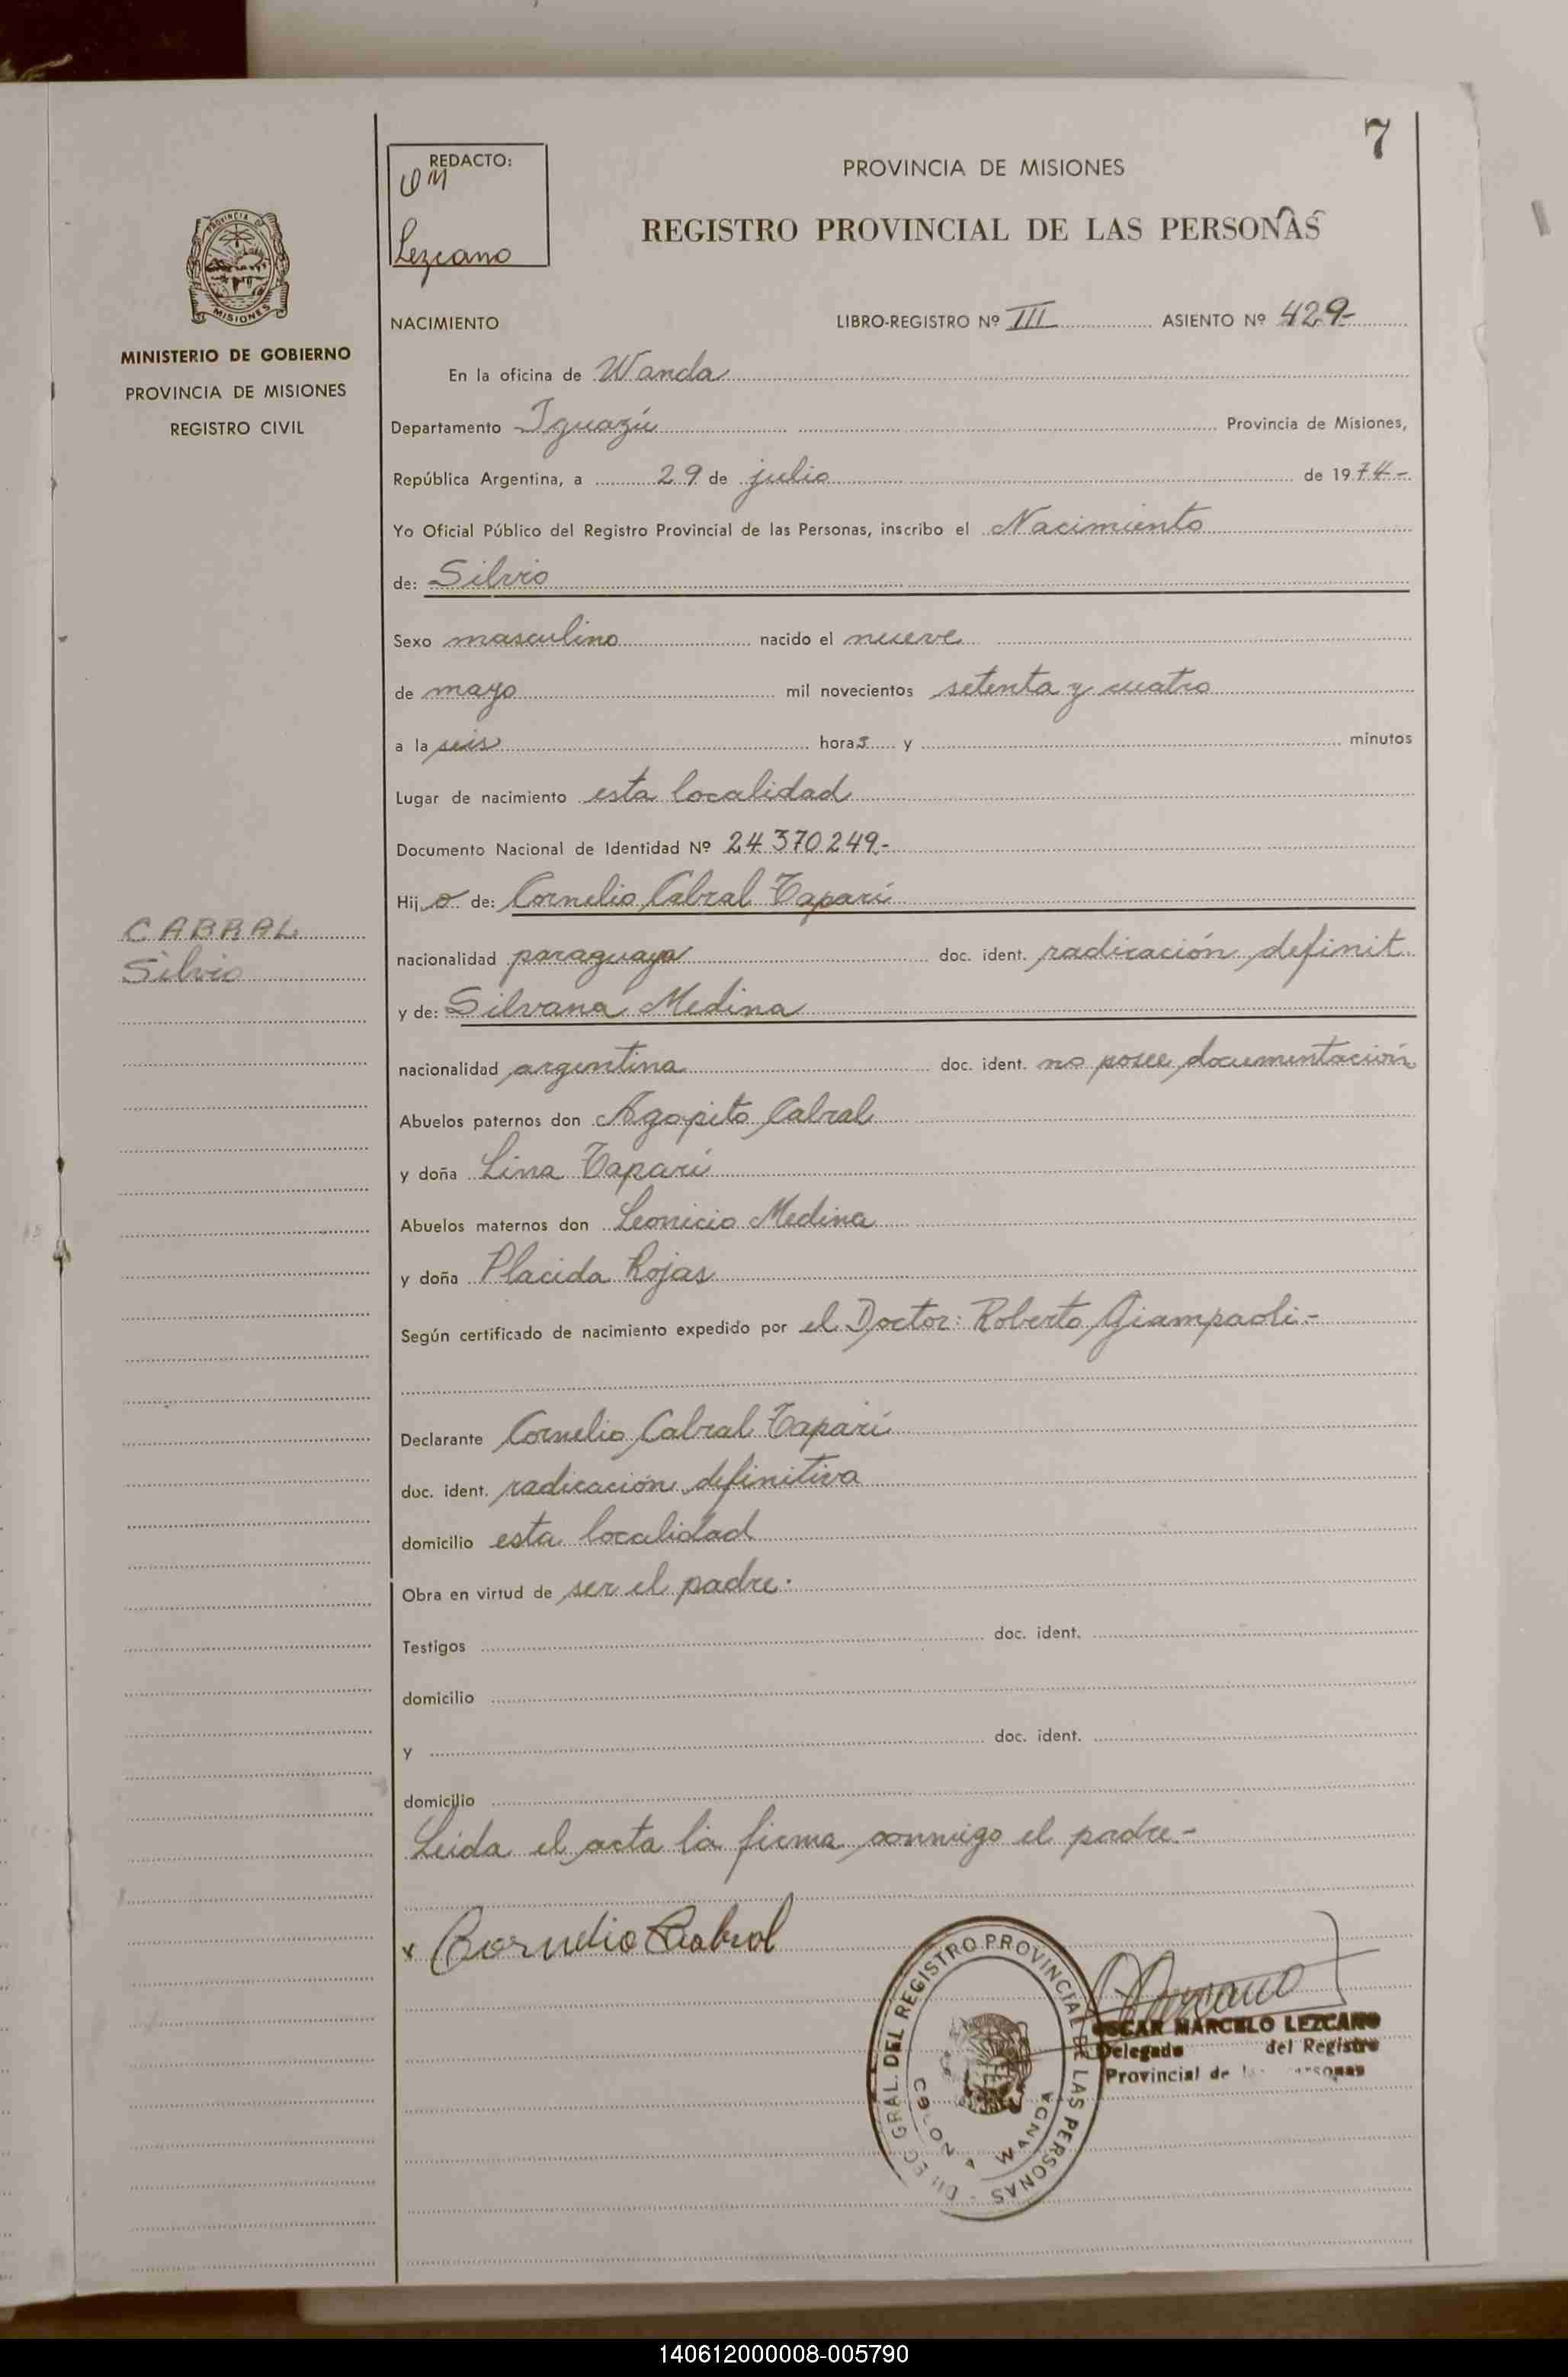 7
REDACTO:
OM
Lezcano
PROVINCIA DE MISIONES
REGISTRO PROVINCIAL DE LAS PERSONAS
PROVINCIA DE
MISIONES
MINISTERIO DE GOBIERNO
PROVINCIA DE MISIONES
REGISTRO CIVIL
NACIMIENTO LIBRO-REGISTRO Nº III ASIENTO Nº 429-
En la oficina de Wanda
Departamento Iguazú Provincia de Misiones,
República Argentina, a 29 de julio de 1974-
Yo Oficial Público del Registro Provincial de las Personas, inscribo el Nacimiento
de: Silvio
Sexo masculino nacido el nueve
de mayo mil novecientos setenta y cuatro
a la seis horas y minutos
Lugar de nacimiento esta localidad
Documento Nacional de Identidad Nº 24.370.249-
Hijo de: Cornelio Cabral Taparí
CABRAL
Silvio
nacionalidad paraguaya doc. ident. radicación definit
y de: Silvana Medina
nacionalidad argentina doc. ident. no posee documentación
Abuelos paternos don Agapito Cabral
y doña Lina Taparí
Abuelos maternos don Leonicio Medina
y doña Placida Rojas
Según certificado de nacimiento expedido por el Doctor: Roberto Giampaoli-
Declarante Cornelio Cabral Taparí
doc. ident. radicación definitiva
domicilio esta localidad
Obra en virtud de ser el padre.
Testigos doc. ident.
domicilio
y doc. ident.
domicilio
Leida el acta la firma conmigo el padre-
x Cornelio Cabral
GRAL. DEL REGISTRO PROVINCIAL DE LAS PERSONAS
WANDA
OSCAR MARCELO LEZCANO
Delegado del Registro
Provincial de las Personas
140612000008-005790